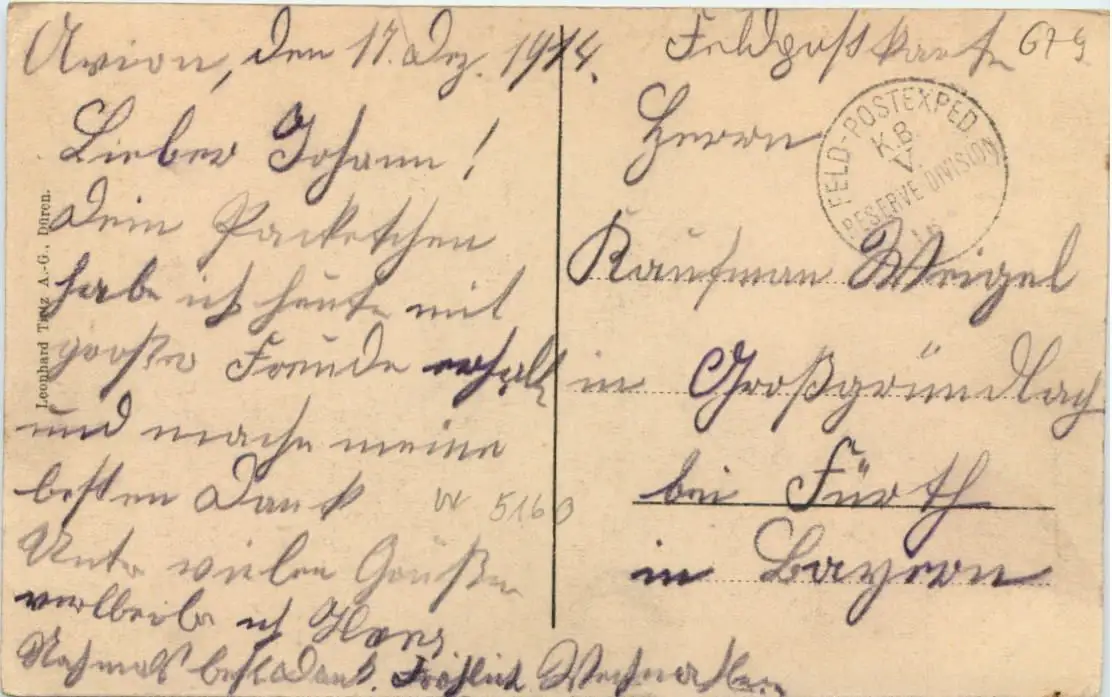 Avion, den 17. Dez. 1914.
Lieber Johann!
Dein Packetchen
habe ich heute mit
großer Freude erhalt
und mache meine
besten Dank
Unter vielen Grüßen
verbleibe ich
Nochmals besten Dank. Fröhlich Weihnachten
W 5160
Leonhard Tietz A.-G., Düren.
Feldpostkarte
679
FELD-POSTEXPED.
K.B.
V.
RESERVE DIVISION
Herrn
Kaufman Weigel
in Großgründlach
bei Fürth
in Bayern